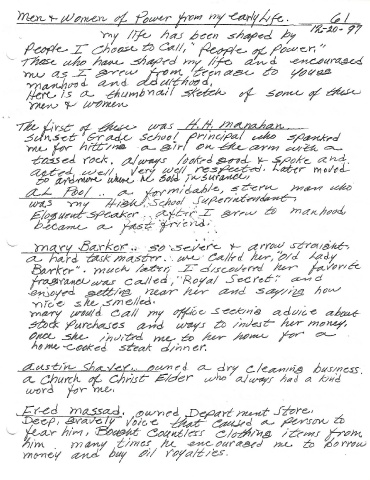 Men & Women of Power from my early Life. 61
12-20-97
my life has been shaped by
People I choose to Call, "People of Power."
Those who have shaped my life and encouraged
me as I grew from teenage to young
manhood and adulthood,
Here is a thumbnail sketch of some of these
men & women
The first of these was H.H. Manahan
Sunset Grade School principal who spanked
me for hitting a girl on the arm with a
tossed rock, always looked good & spoke and
acted well, very well respected. Later moved
to ardmore where he sold insurance.
al Pool.. a formidable, stern man who
was my High School Superintendent,
Eloquent speaker.. after I grew to manhood,
became a fast friend.
mary Barker.. so severe & arrow straight
a hard task mastr. we called her, "old Lady
Barker". much later, I discovered her favorite
fragrance was called, "Royal Secret" and
enjoyed getting near her and saying how
nice she smelled.
mary would call my office seeking advice about
stock purchases and ways to invest her money.
once she invited me to her home for a
home-cooked steak dinner.
austin Shaver.. owned a dry cleaning business.
a Church of Christ Elder who always had a kind
word for me.
Fred massad. owned Department Store.
Deep, gravely voice that caused a person to
fear him, Bought Countless clothing items from
him. many times he encouraged me to borrow
money and buy oil royalties.